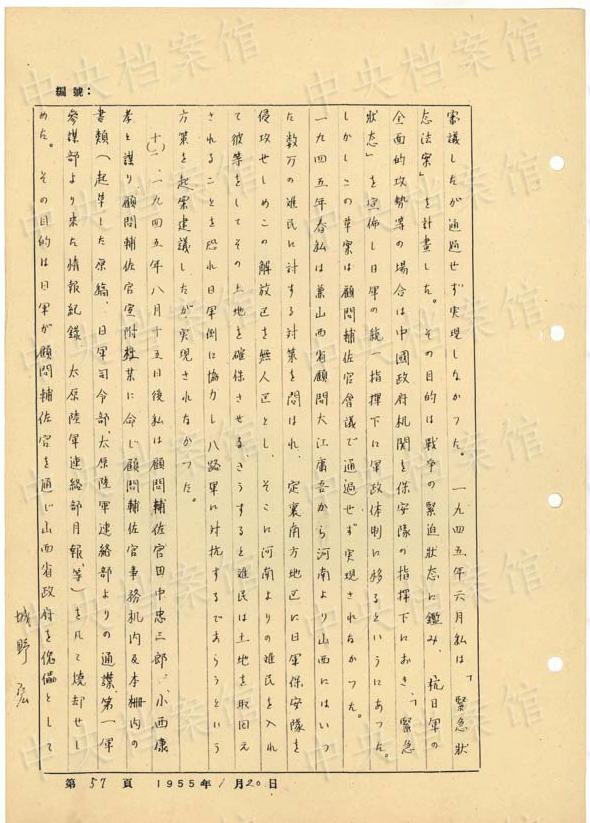 編號:
審議したが通過せず実現しなかつた。一九四五年六月私は「緊急狀
态法案」を計畫した。その目的は戦争の緊迫狀态に鑑み、抗日軍の
全面的攻勢等の場合は中國政府机関を保安隊の指揮下におき、「緊急
狀态」を宣佈し日軍の統一指揮下に軍政体制に移るというにあつた。
しかしこの草案は顧問輔佐官会議で通過せず実現されなかつた。
一九四五年春私は兼山西省顧問大江庸吾から河南より山西にはいつ
た数万の难民に対する対策を問はれ、定襄南方地区に日軍保安隊を
侵攻せしめこの解放区を無人区とし、そこに河南よりの难民を入れ
て彼等をしてその土地を確保させる、さうすると难民は土地を取回え
されることを恐れ日軍側に協力し八路軍に対抗するであらうという
方策を起案建議したが実現されなかつた。
十(二)、一九四五年八月十五日後私は顧問輔佐官田中忠三郎、小西康
孝と謀り顧問輔佐官室附 某に命じ顧問輔佐官事務机内及本棚内の
書類(起草した原稿、日軍司令部、太原陸軍連絡部よりの通諜、第一軍
參謀部より来た情報紀録、太原陸軍連絡部月報等)を凡て焼却せし
めた。その目的は日軍が顧問輔佐官を通じ山西省政府を傀儡として
城野宏
第 57 頁 1955年 1月20日
中央档案馆